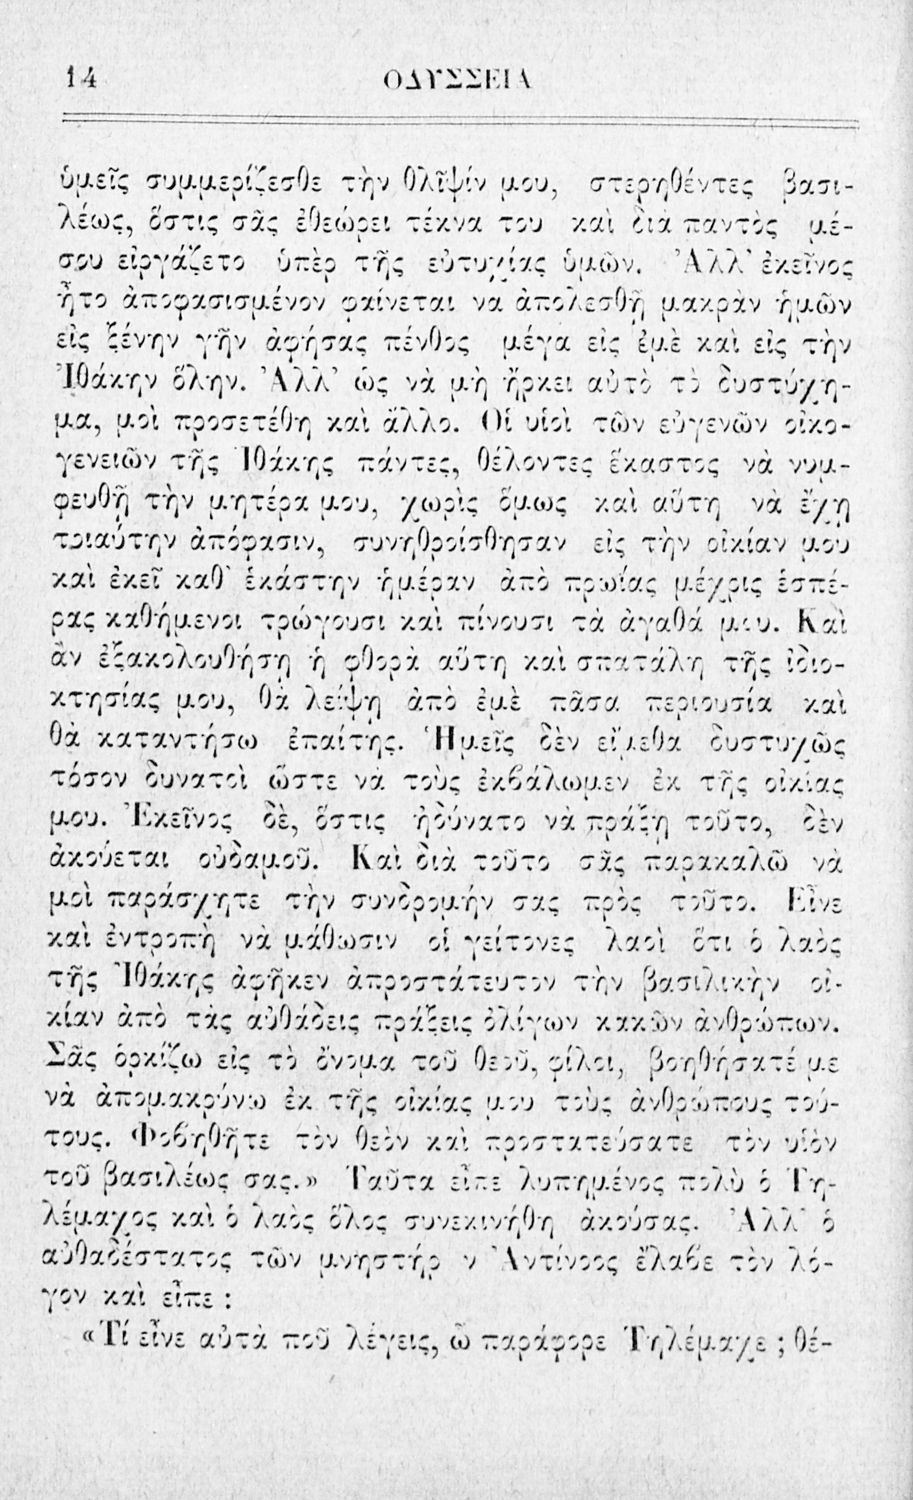 14 ΟΔΥΣΣΕΙΑ
ὑμεῖς συμμερίζεσθε τὴν θλῖψίν μου, στερηθέντες βασι-
λέως, ὅστις σᾶς ἐθεώρει τέκνα του καὶ διὰ παντὸς μέ-
σου εἰργάζετο ὑπὲρ τῆς εὐτυχίας ὑμῶν. Ἀλλ' ἐκεῖνος
ἦτο ἀποφασισμένον φαίνεται να ἀπολεσθῇ μακρὰν ἡμῶν
εἰς ξένην γῆν ἀφήσας πένθος μέγα εἰς ἐμὲ καὶ εἰς τὴν
Ἰθάκην ὅλην. Ἀλλ' ὡς νὰ μὴ ἤρκει αὐτὸ τὸ δυστύχη-
μα, μοὶ προσετέθη καὶ ἄλλο. Οἱ υἱοὶ τῶν εὐγενῶν οἰκο-
γενειῶν τῆς Ἰθάκης πάντες, θέλοντες ἕκαστος νὰ νυμ-
φευθῇ τὴν μητέρα μου, χωρὶς ὅμως καὶ αὕτη νὰ ἔχῃ
τοιαύτην ἀπόφασιν, συνηθροίσθησαν εἰς τὴν οἰκίαν μου
καὶ ἐκεῖ καθ' ἑκάστην ἡμέραν ἀπὸ πρωίας μέχρις ἑσπέ-
ρας καθήμενοι τρώγουσι καὶ πίνουσι τὰ ἀγαθά μου. Καὶ
ἂν ἐξακολουθήσῃ ἡ φθορὰ αὕτη καὶ σπατάλη τῆς ἰδιο-
κτησίας μου, θὰ λείψῃ ἀπὸ ἐμὲ πᾶσα περιουσία καὶ
θὰ καταντήσω ἐπαίτης. Ἡμεῖς δὲν εἴμεθα δυστυχῶς
τόσον δυνατοὶ ὥστε νὰ τοὺς ἐκβάλωμεν ἐκ τῆς οἰκίας
μου. Ἐκεῖνος δὲ, ὅστις ἠδύνατο νὰ πράξῃ τοῦτο, δὲν
ἀκούεται οὐδαμοῦ. Καὶ διὰ τοῦτο σᾶς παρακαλῶ νὰ
μοὶ παράσχητε τὴν συνδρομήν σας πρὸς τοῦτο. Εἶνε
καὶ ἐντροπὴ νὰ μάθωσιν οἱ γείτονες λαοὶ ὅτι ὁ λαὸς
τῆς Ἰθάκης ἀφῆκεν ἀπροστάτευτον τὴν βασιλικὴν οἰ-
κίαν ἀπὸ τὰς αὐθάδεις πράξεις ὀλίγων κακῶν ἀνθρώπων.
Σᾶς ὁρκίζω εἰς τὸ ὄνομα τοῦ θεοῦ, φίλοι, βοηθήσατέ με
νὰ ἀπομακρύνω ἐκ τῆς οἰκίας μου τοὺς ἀνθρώπους τού-
τους. Φοβηθῆτε τὸν θεὸν καὶ προστατεύσατε τὸν υἱὸν
τοῦ βασιλέως σας.» Ταῦτα εἶπε λυπημένος πολὺ ὁ Τη-
λέμαχος καὶ ὁ λαὸς ὅλος συνεκινήθη ἀκούσας. Ἀλλ' ὁ
αὐθαδέστατος τῶν μνηστήρ ν Ἀντίνοος ἔλαβε τὸν λό-
γον καὶ εἶπε :
«Τί εἶνε αὐτὰ ποῦ λέγεις, ὦ παράφορε Τηλέμαχε ; θέ-